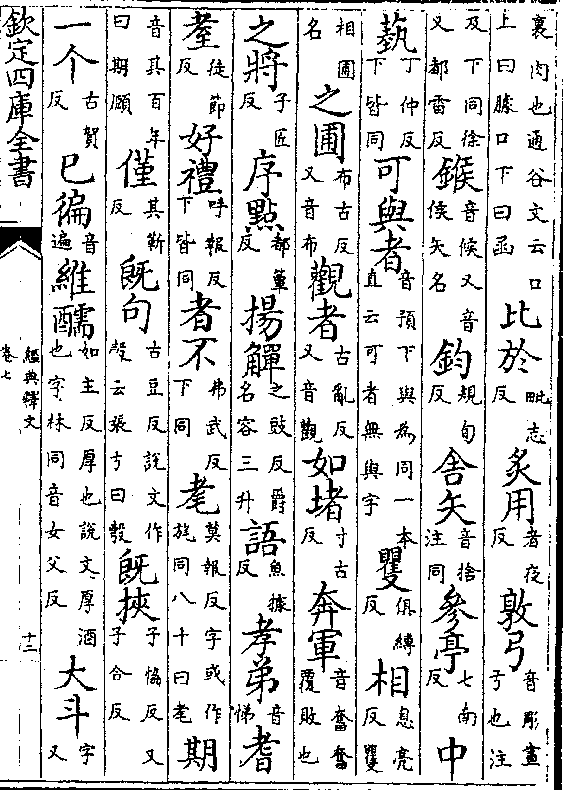 裏肉也通谷文云口上曰臄口下曰函比於毗志反炙用者夜反敦弓音彫畫弓也注
及下同徐又都雷反鍭音候又音侯矢名鈞規旬反舍矢音捨注同參亭七南反中
藝丁仲反下皆同可與者音預下與為同一本直云可者無與字矍俱縛反相息亮反矍
相圃名之圃布古反又音布觀者古亂反又音觀如堵寸古反奔軍音奮奮覆敗也
之將子匠反序點都簟反揚觶之豉反爵名容三升語魚據反孝弟音悌耆
耋徒節反好禮呼報反下皆同者不弗武反下同耄莫報反字或作旄同八十曰耄期
音其百年曰期頤僅其靳反既句古豆反說文作彀云張弓曰彀既挾子協反又子合反
一个古賀反已徧音遍維醹如主反厚也說文厚酒也字林同音女父反大斗字又
欽定四庫全書
經典釋文
卷七
十二